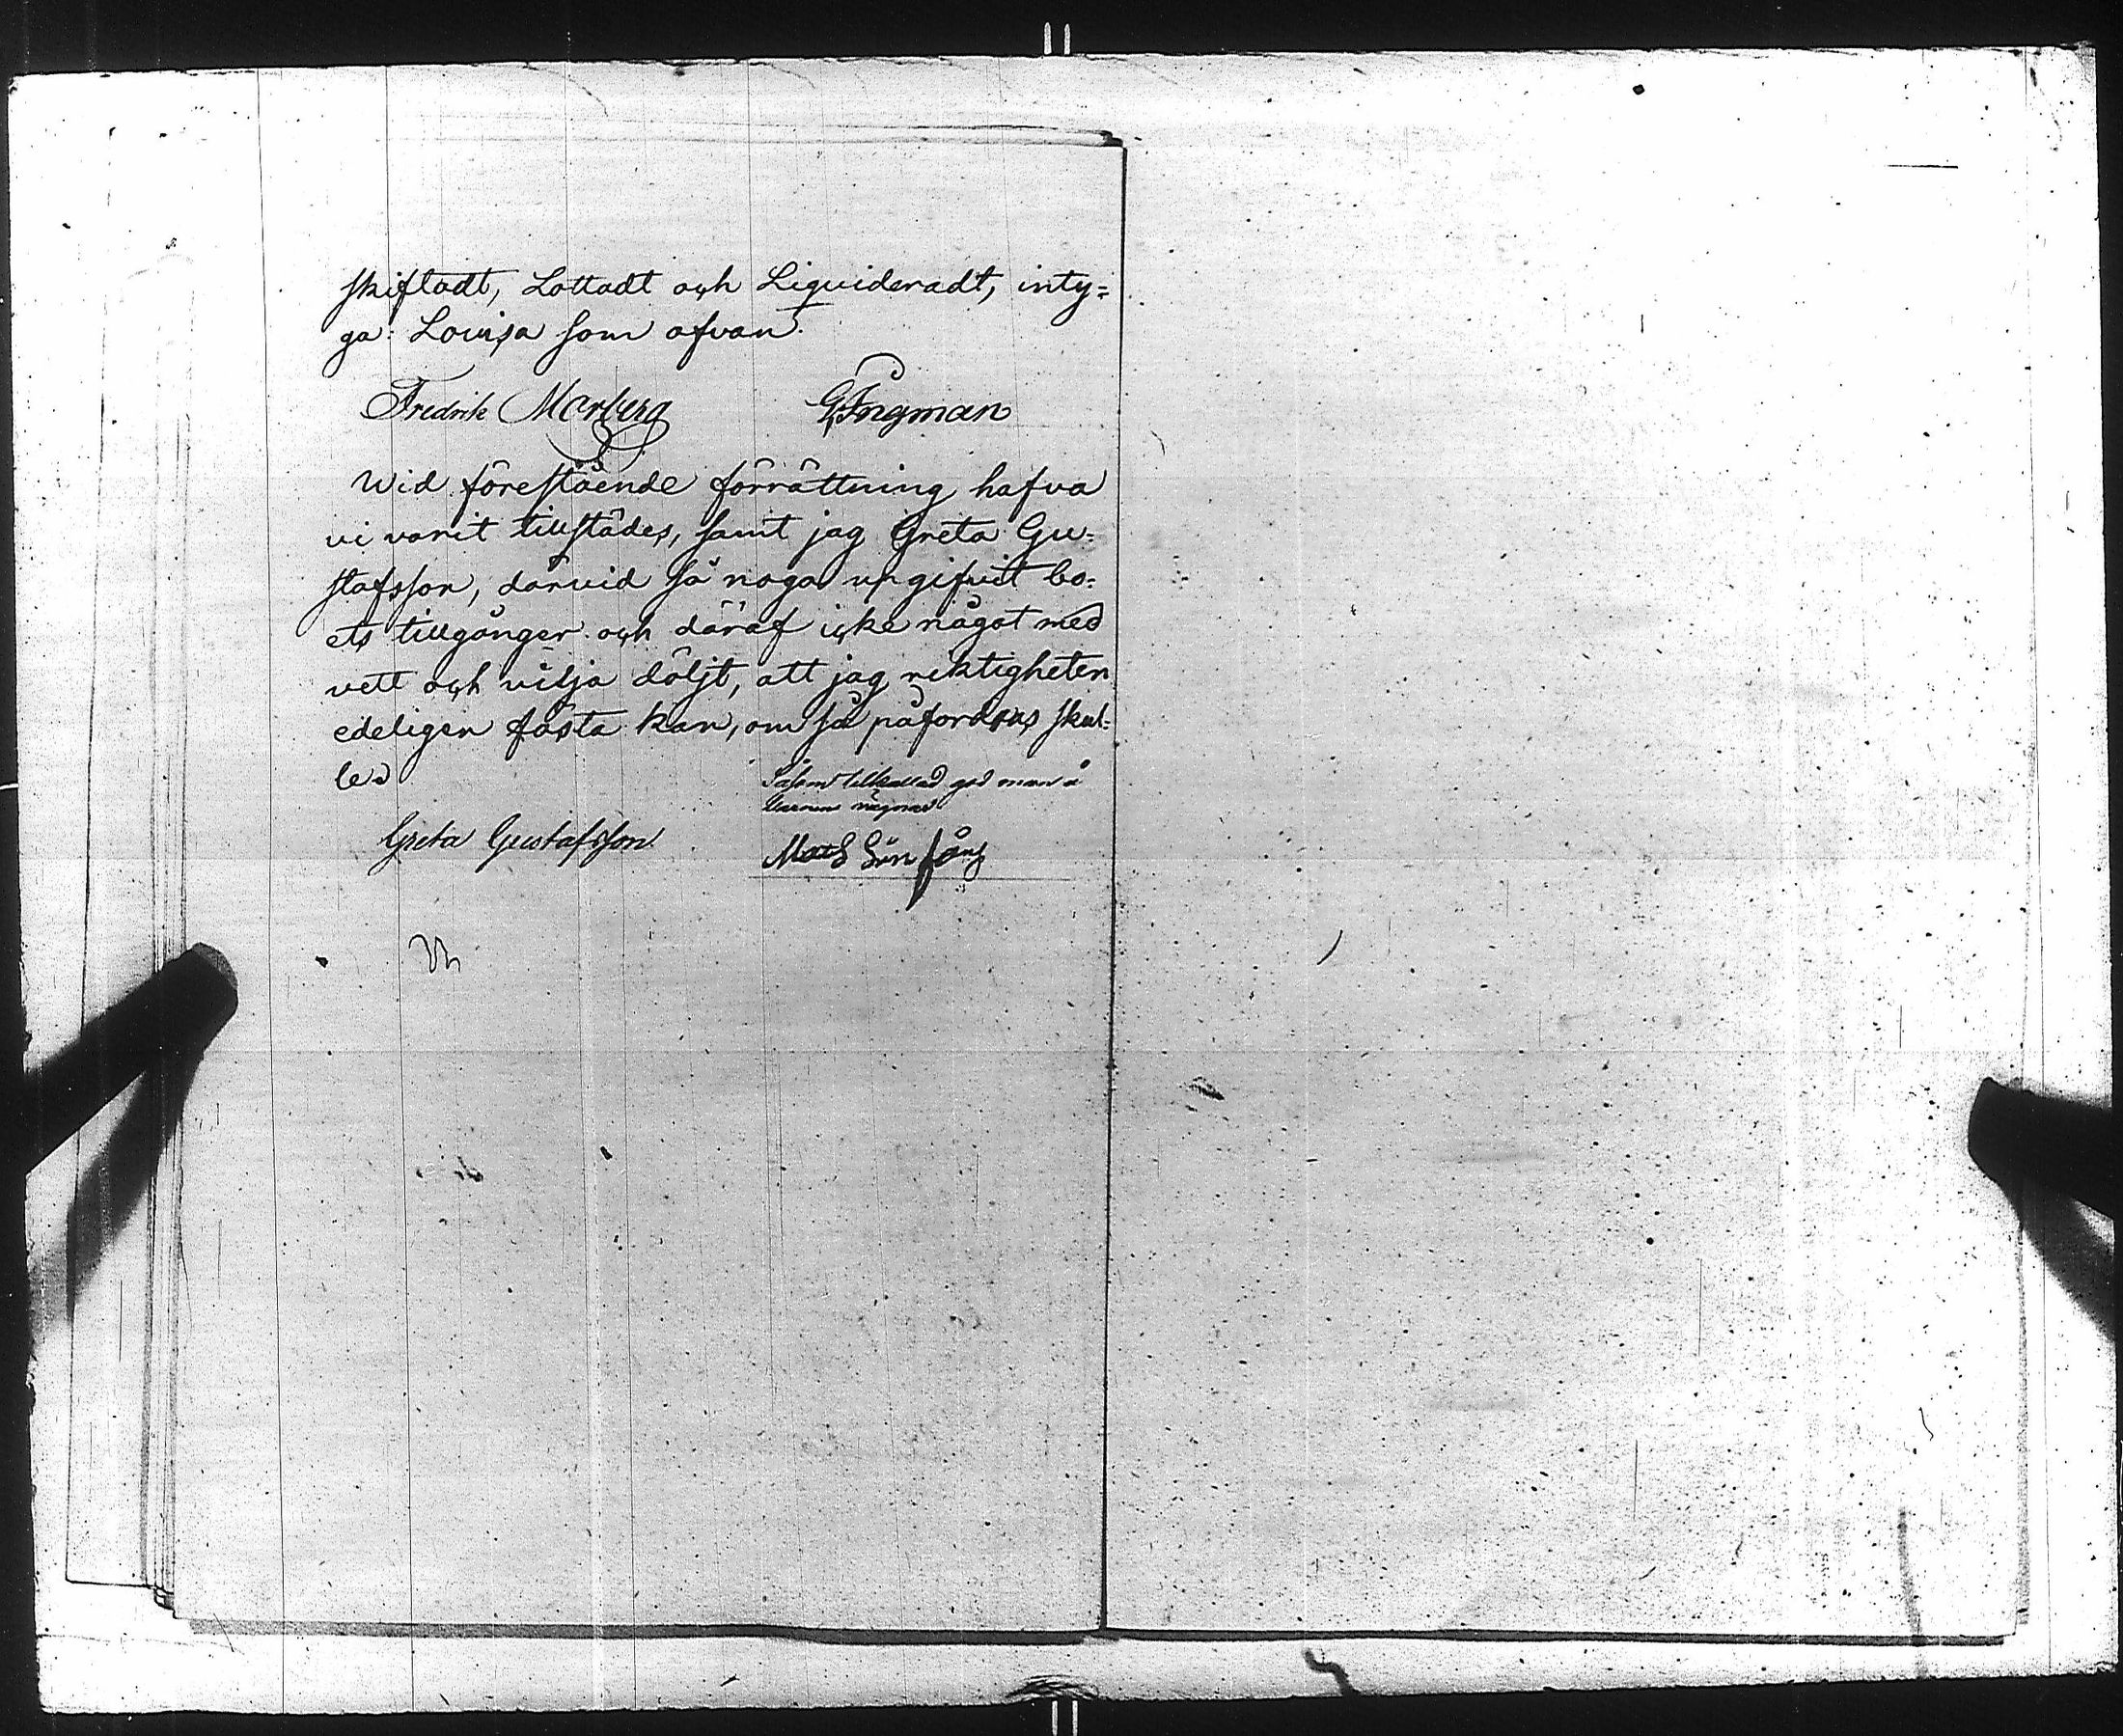 skiftadt, Lottadt och Liquideradt, inty=
ga. Lovisa som ofvan.
Fredrik Marberg G. Ingman
Wid förestående förrättning hafva
vi varit tillstädes, samt jag Greta Gu=
stafsson, därvid så noga upgifvit bo=
ets tillgånger och däraf icke något med
vett och vilja döljt, att jag riktigheten
edeligen fästa kan, om så påfordras skul=
le.
Såsom tillkallad god man å
Barnens vägnar
Greta Gustafsson
Mats